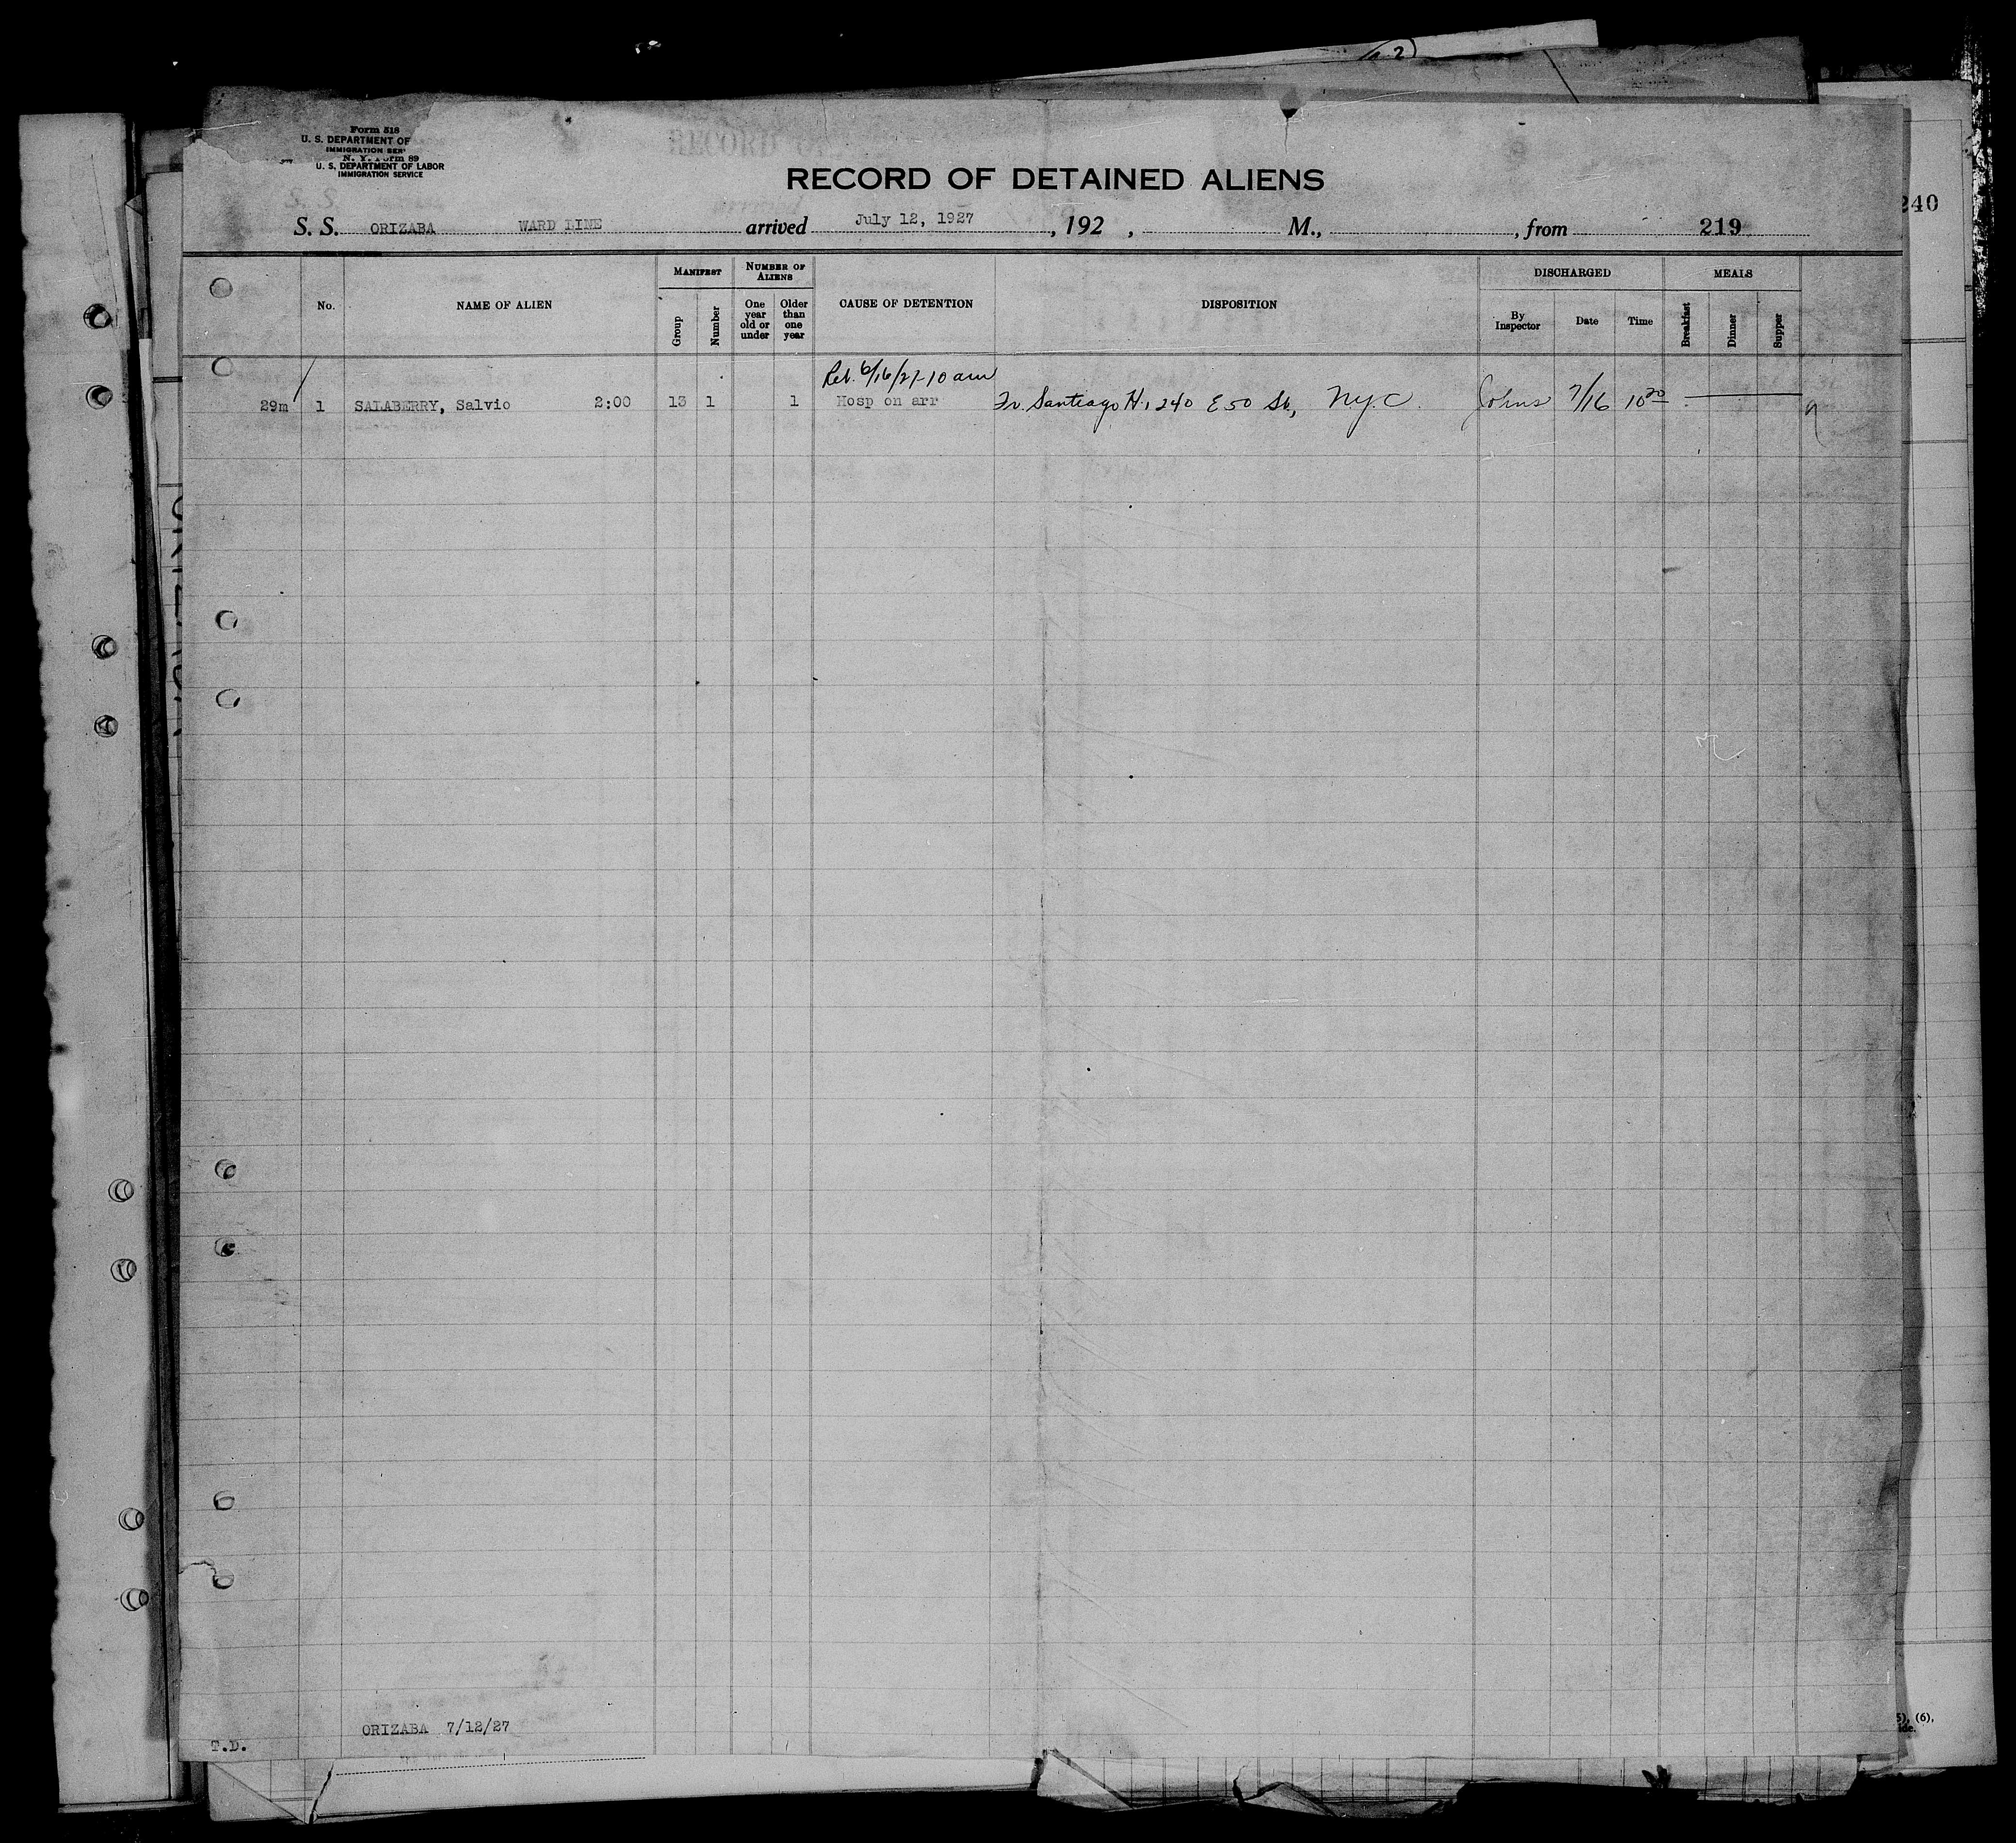 (a 2)
Form 518
U. S. DEPARTMENT OF
IMMIGRATION SER
N. Y. Form 89
U. S. DEPARTMENT OF LABOR
IMMIGRATION SERVICE
RECORD
RECORD OF DETAINED ALIENS
S. S. ORIZABA WARD LINE arrived July 12, 1927, 192 , M., , from 219
240
No. NAME OF ALIEN MANIFEST Group Number NUMBER OF ALIENS One year old or under Older than one year CAUSE OF DETENTION DISPOSITION DISCHARGED By Inspector Date Time MEALS Breakfast Dinner Supper
Rel. 6/16/27-10 am
29m 1 SALABERRY, Salvio 2:00 13 1 1 Hosp on arr Fr. Santiago H, 240 E 50 St, N.Y.C. Johns 7/16 10 20
ORIZABA 7/12/27
T.D.
5), (6),
ide.